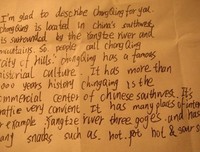 I'm glad to describe ChongQing for you.
ChongQing is located in china's southwest,
is surrounded by the Yangtze river and
mountains. So people call ChongQing
City of Hills. ChongQing has a famous
historical culture. It has more than
000 years history ChongQing is the
commercial center of chinese southwest. Its
traffic very convient It has many places of inter
r example Yangtze river three gogels. and has
any snacks such as, hot pot hot & sour